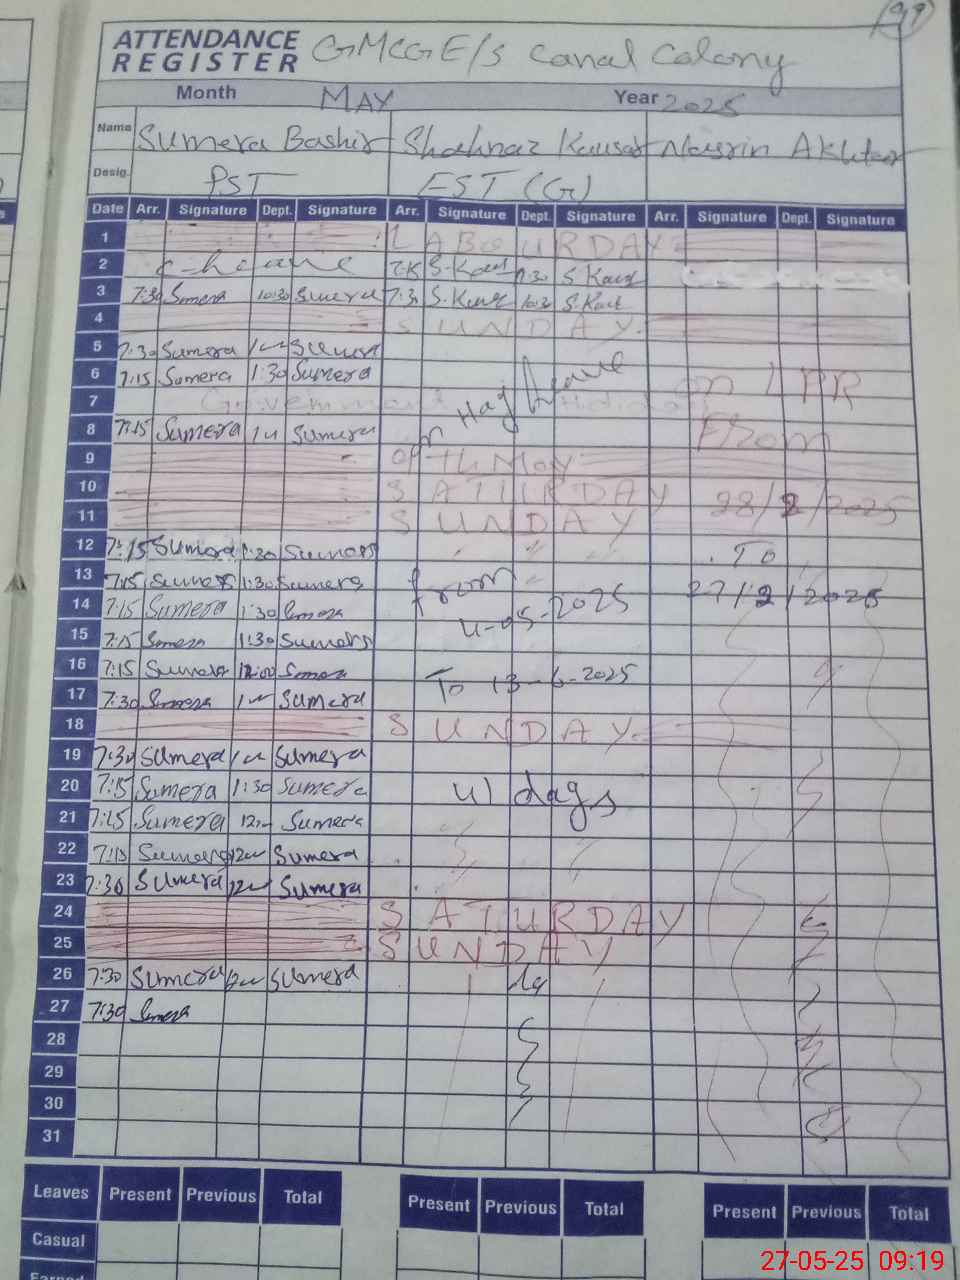 99
ATTENDANCE REGISTER GMCGE/S Canal Colony
Month MAY Year 2025
Name Sumera Bashir Shahnaz Kausar Nasrin Akhtar
Desig. PST EST (G)
Date Arr. Signature Dept. Signature Arr. Signature Dept. Signature Arr. Signature Dept. Signature
1 LABOUR DAY
2 S.Kau 11:30 S Kauz
3 7:30 Sumera 10:30 Sumera 7:30 S.Kauz 10:30 S.Kauz
4 SUNDAY
5 7:30 Sumera Sumera
6 7:15 Sumera 1:30 Sumera on Haj Leave on LPR
7 Government Holiday
8 7:15 Sumera Sumera From
9 May
10 SATURDAY 28/2/2025
11 SUNDAY
12 7:15 Sumera 1:30 Sumera To
13 7:15 Sumera 1:30 Sumera from 27/2/2026
14 7:15 Sumera 1:30 Sumera 4-05-2025
15 7:15 Sumera 1:30 Sumera
16 7:15 Sumera 12:00 Sumera To 13-6-2025
17 7:30 Sumera Sumera
18 SUNDAY
19 7:30 Sumera Sumera
20 7:15 Sumera 1:30 Sumera 41 days
21 7:15 Sumera Sumera
22 7:15 Sumera Sumera
23 7:30 Sumera Sumera
24 SATURDAY
25 SUNDAY
26 7:30 Sumera Sumera
27 7:30 Sumera
28
29
30
31
Leaves Present Previous Total Present Previous Total Present Previous Total
Casual
Earned
27-05-25 09:19